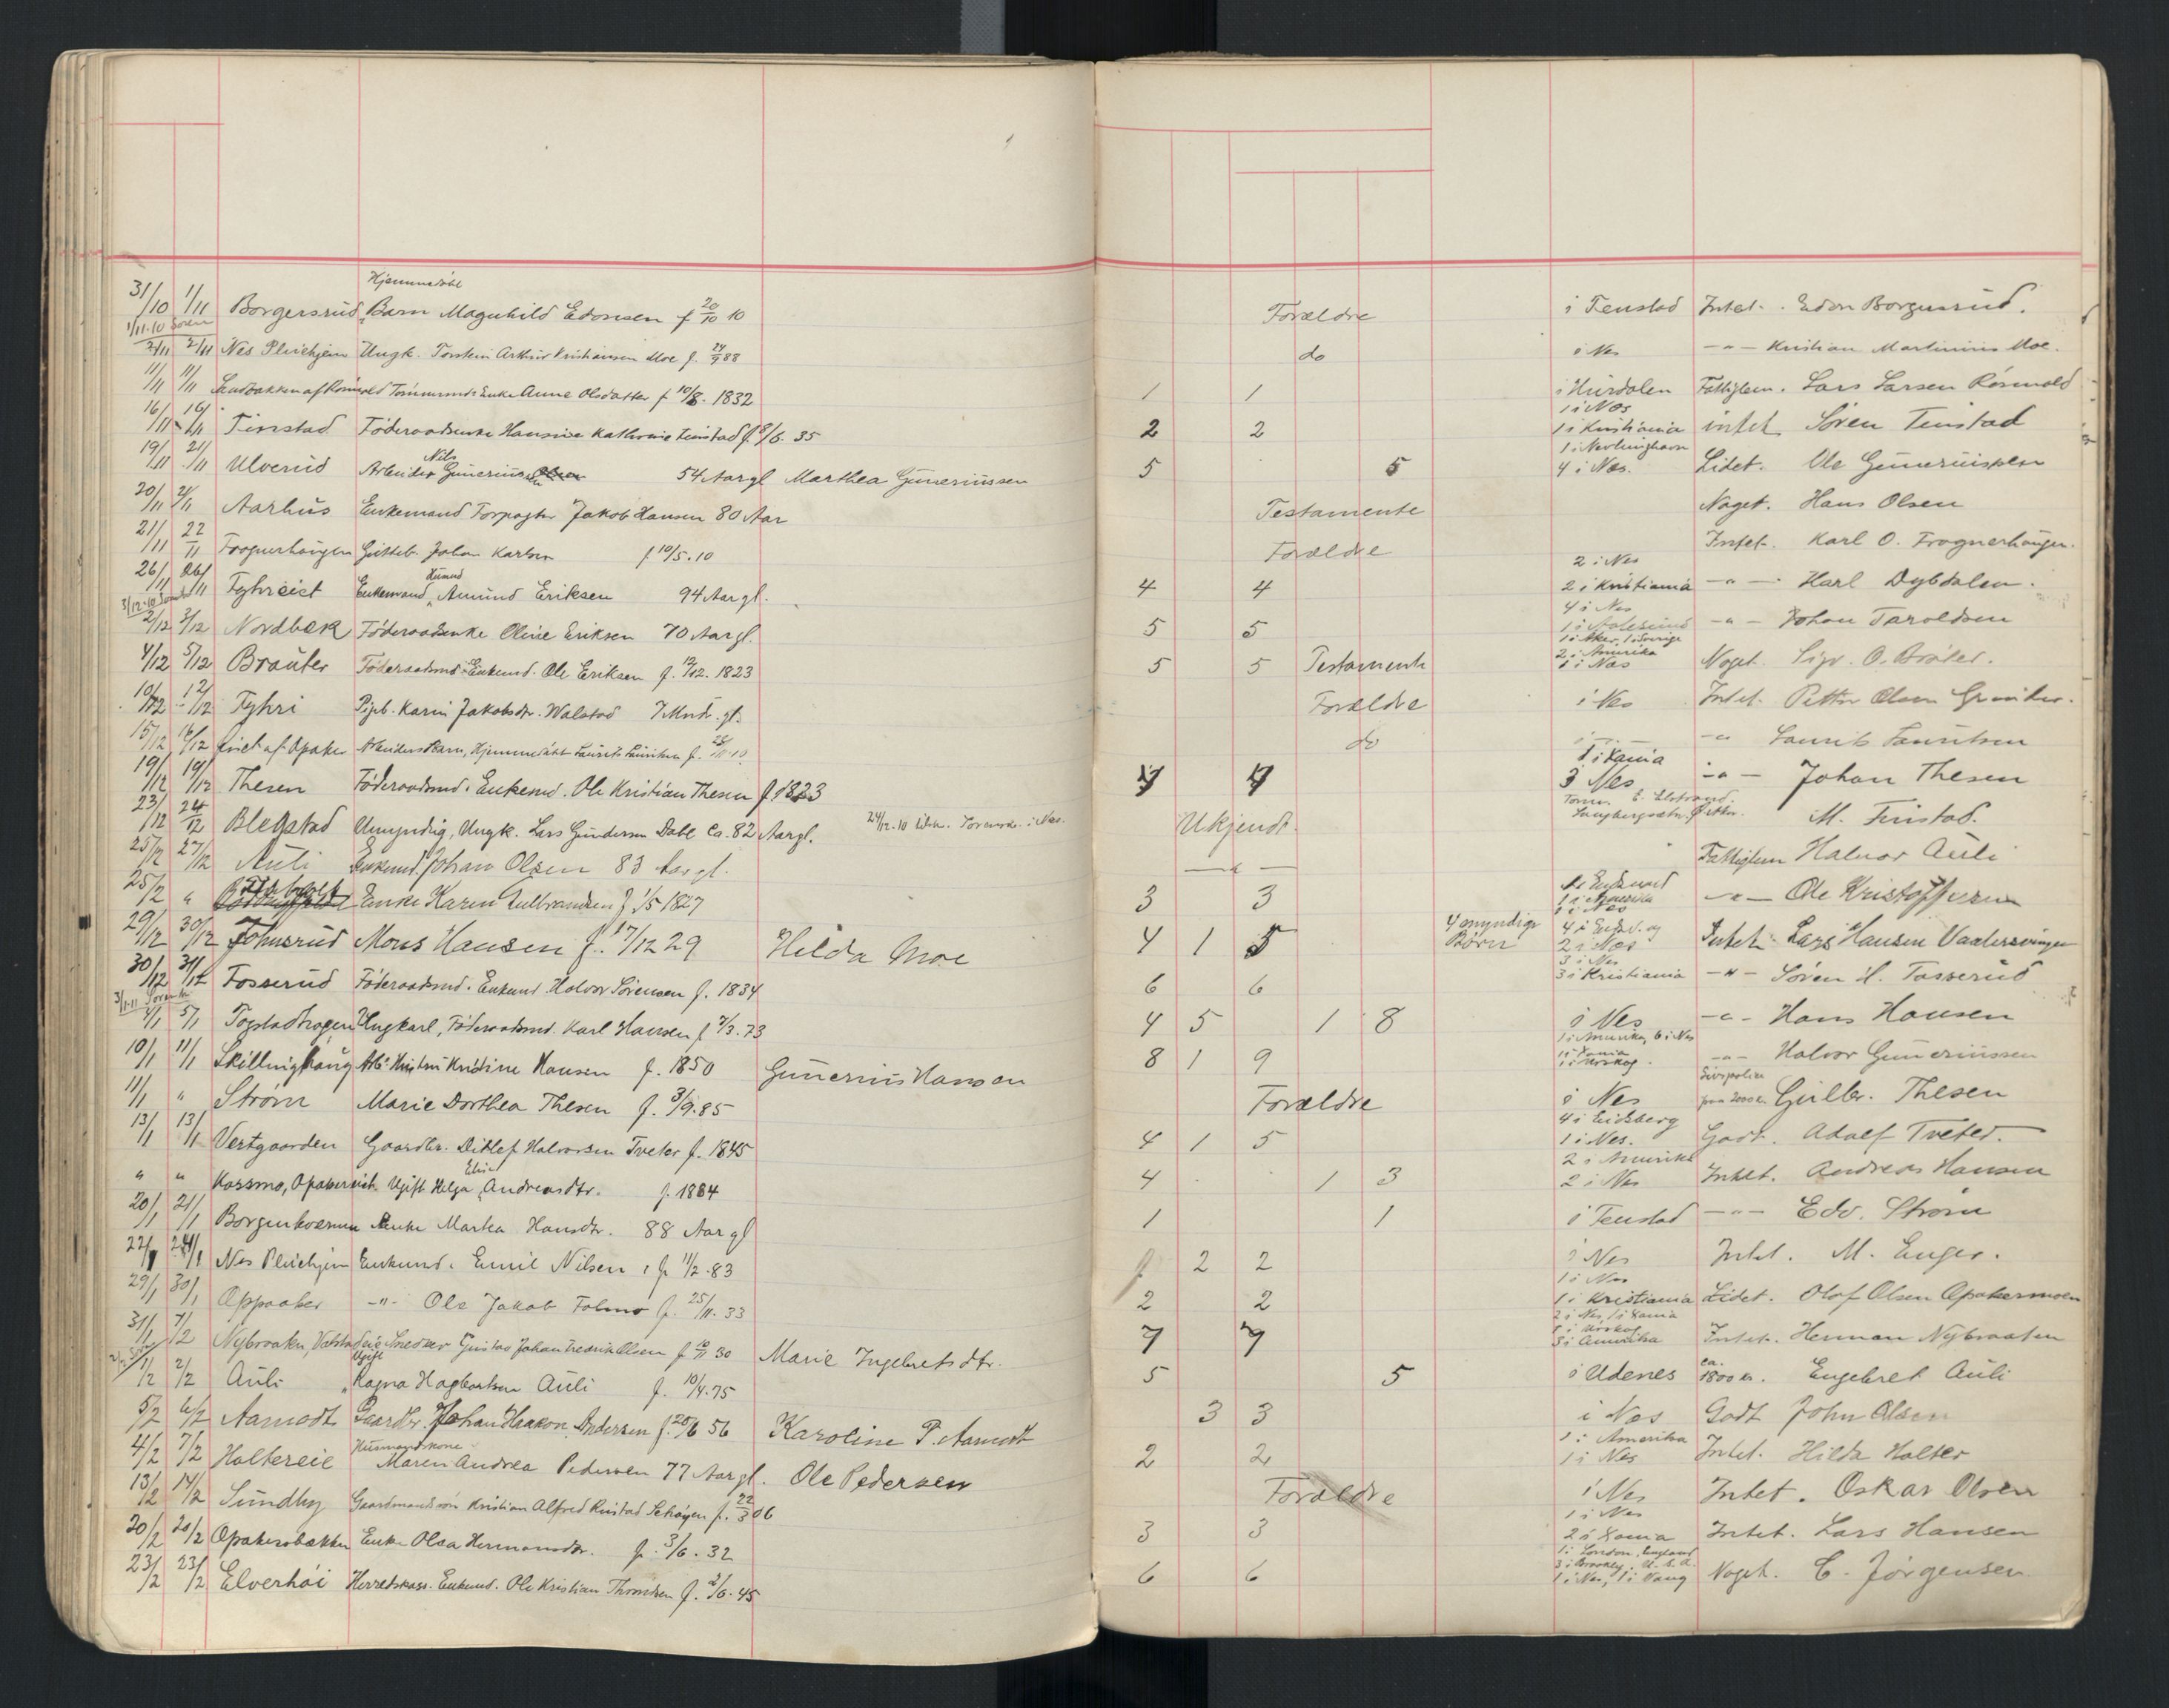 Hjemmedøbt
31/10 1/11 Borgersrud Barn Magnhild Edonsen f 20/10 10 Forældre i Fenstad Intet. Edon Borgersrud.
1/11-10 Soren
2/11 2/11 Nes Pleiehjem Ungk. Torstein Arthur Kristiansen Moe f. 24/9 88 do i Nes -"- Kristian Martinius Moe.
11/11 11/11 Enke Anne Olsdatter f 10/8. 1832 1 1 i Hurdalen Fattiglem. Lars Larsen
1 i Nes
16/11 16/11 Finstad Föderaadsenke Hansine Kathrine Finstad f. 8/6. 35 2 2 1 i Kristiania intet Sören Finstad
1 i
Nils
19/11 21/11 Ulverud Arbeider Gunerius 54 Aar gl Marthea Guneriussen 5 5 4 i Nes. Lidet. Ole Guneriussen
20/11 21/11 Aarhus Enkemand Forpagter Jakob Hansen 80 Aar Testamente Noget. Hans Olsen
21/11 22/11 Frognerhaugen Gutteb. Johan Karlsen f 10/5. 10 Forældre Intet. Karl O. Frognerhaugen.
2 i Nes
26/11 26/11 Fyhrieiet Enkemand Amund Eriksen 94 Aar gl. 4 4 2 i Kristiania -"- Karl Dybdalen.
3/12-10
4 i Nes
2/12 3/12 Nordbæk Föderaadsenke Oline Eriksen 70 Aar gl. 5 5 -"- Johan Taroldsen
1 i Aker, 1 i Sverige
2 i Amerika
4/12 5/12 Brauter Föderaadsmd. Enkemd. Ole Eriksen f. 1823 5 5 Testamente 1 i Nes Noget. Sigv. O. Bråter.
10/12 12/12 Fyhri Pigeb. Karin Jakobsdr. Walstad 7 Mndr. gl. Forældre i Nes Intet. Petter Olsen
15/12 16/12 Eiet af Opaker Arbeiders Barn, Hjemmedöbt Laurits Lauritsen f. do -"- Laurits Lauritsen
1 i Xania
19/12 19/12 Thesen Föderaadsmd. Enkemd. Ole Kristian Thesen f 1823 3 Nes -"- Johan Thesen
23/12 24/12 Blegstad Umyndig, Ungk. Lars Gundersen Dahl Ca. 82 Aar gl. 24/12-10 Ukjendt. M. Finstad.
25/12 27/12 Auli Enkemd. Johan Olsen 83 Aar gl. -"- Fattiglem Halvor Auli
25/12 " Enke Karen Gulbrandsen f 1/5 1827 3 3 1 i Amerika -"- Ole Kristoffersen
29/12 30/12 Fohusrud Mons Hansen f. 17/12 29 Hilda Moe 4 1 5 4 myndige Børn 2 i Nes Intet. Lars Hansen Vaalersvingen
3 i Nes
30/12 31/12 Fosserud Föderaadsmd. Enkemd. Halvor Sörensen f. 1834 6 6 3 i Kristiania -"- Sören H. Fosserud
4/1 5/1 Ungkarl, Föderaadsmd. Karl Hansen f 7/3. 73 4 5 1 8 i Nes -"- Hans Hansen
1 i Amerika, 6 i Nes
10/1 11/1 Skillinghaug Kristine Hansen f. 1850 Gunerius Hansen 8 1 9 -"- Halvor Guneriussen
11/1 " Strøm Marie Dorthea Thesen f. 3/9. 85 Forældre i Nes Livspolice paa 2000 kr. Gulbr. Thesen
4 i Eidsberg
13/1 13/1 Vestgaarden Gaardbr. Ditlef Halvorsen Tveter f. 1845 4 1 5 1 i Nes. Godt. Adolf Tveter.
2 i Amerika
" " Korsmo, Opakereiet Ugift Helga Andreasdtr. f. 1864 4 1 3 2 i Nes Intet. Andreas Hansen
20/1 21/1 Enke Martea Hansdtr. 88 Aar gl 1 1 i Fenstad -"- Edv. Strøm
22/1 24/1 Nes Pleiehjem Enkemd. Emil Nilsen f 11/2. 83 2 2 i Nes Intet. M. Enger.
1 i Nes
29/1 30/1 Oppaaker -"- Ole Jakob Folmo f. 25/11. 33 2 2 1 i Kristiania Lidet. Olof Olsen Opakermoen
2 i Nes, 1 i Xania
31/1 1/2 Nybraaten, Snedker Gustav Johan Fredrik Olsen f 10/11 30 Marie Ingebretsdtr. 7 7 3 i Amerika Intet. Herman Nybraaten
Ugift
1/2 2/2 Auli Ragna Hagbartsen Auli f. 10/4. 75 5 5 i Udenes ca. 1800 kr. Engebret Auli
5/2 6/2 Aamodt Gaardbr. Johan Haakon Andersen f. 20/6 56 Karoline P. Aamodt 3 3 i Nes Godt John Olsen
Husmandskone
1 i Amerika
4/2 7/2 Haltereie Maren Andrea Pedersen 77 Aar gl. Ole Pedersen 2 2 1 i Nes Intet. Hilda Halter
13/2 14/2 Sundby Gaardmandssön Kristian Alfred f. 22/3 06 Forældre i Nes Intet. Oskar Olsen
1 i Nes
20/2 20/2 Opakersbakken Enke Olea Hermansdtr. f. 3/6. 32 3 3 2 i Xania Intet. Lars Hansen
1 i London, England
3 i Brookly. U.S.A.
23/2 23/2 Elverhöi Enkemd. Ole Kristian Thomdsen f. 2/6. 45 6 6 1 i Nes, 1 i Vang Noget. C. Jörgensen